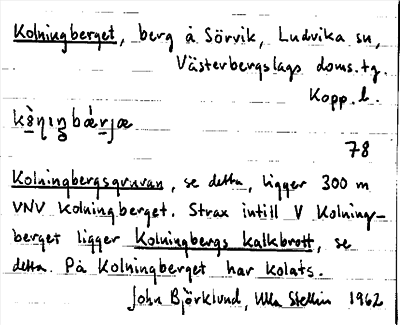 Kolningberget, berg å Sörvik, Ludvika sn,
Västerbergslags doms.tg.
Kopp. l.
78
Kolningbergsgruvan, se detta, ligger 300 m
VNV Kolningberget. Strax intill V Kolning-
berget ligger Kolningbergs kalkbrott, se
detta. På Kolningberget har kolats.
John Björklund, Ulla Stellin 1962